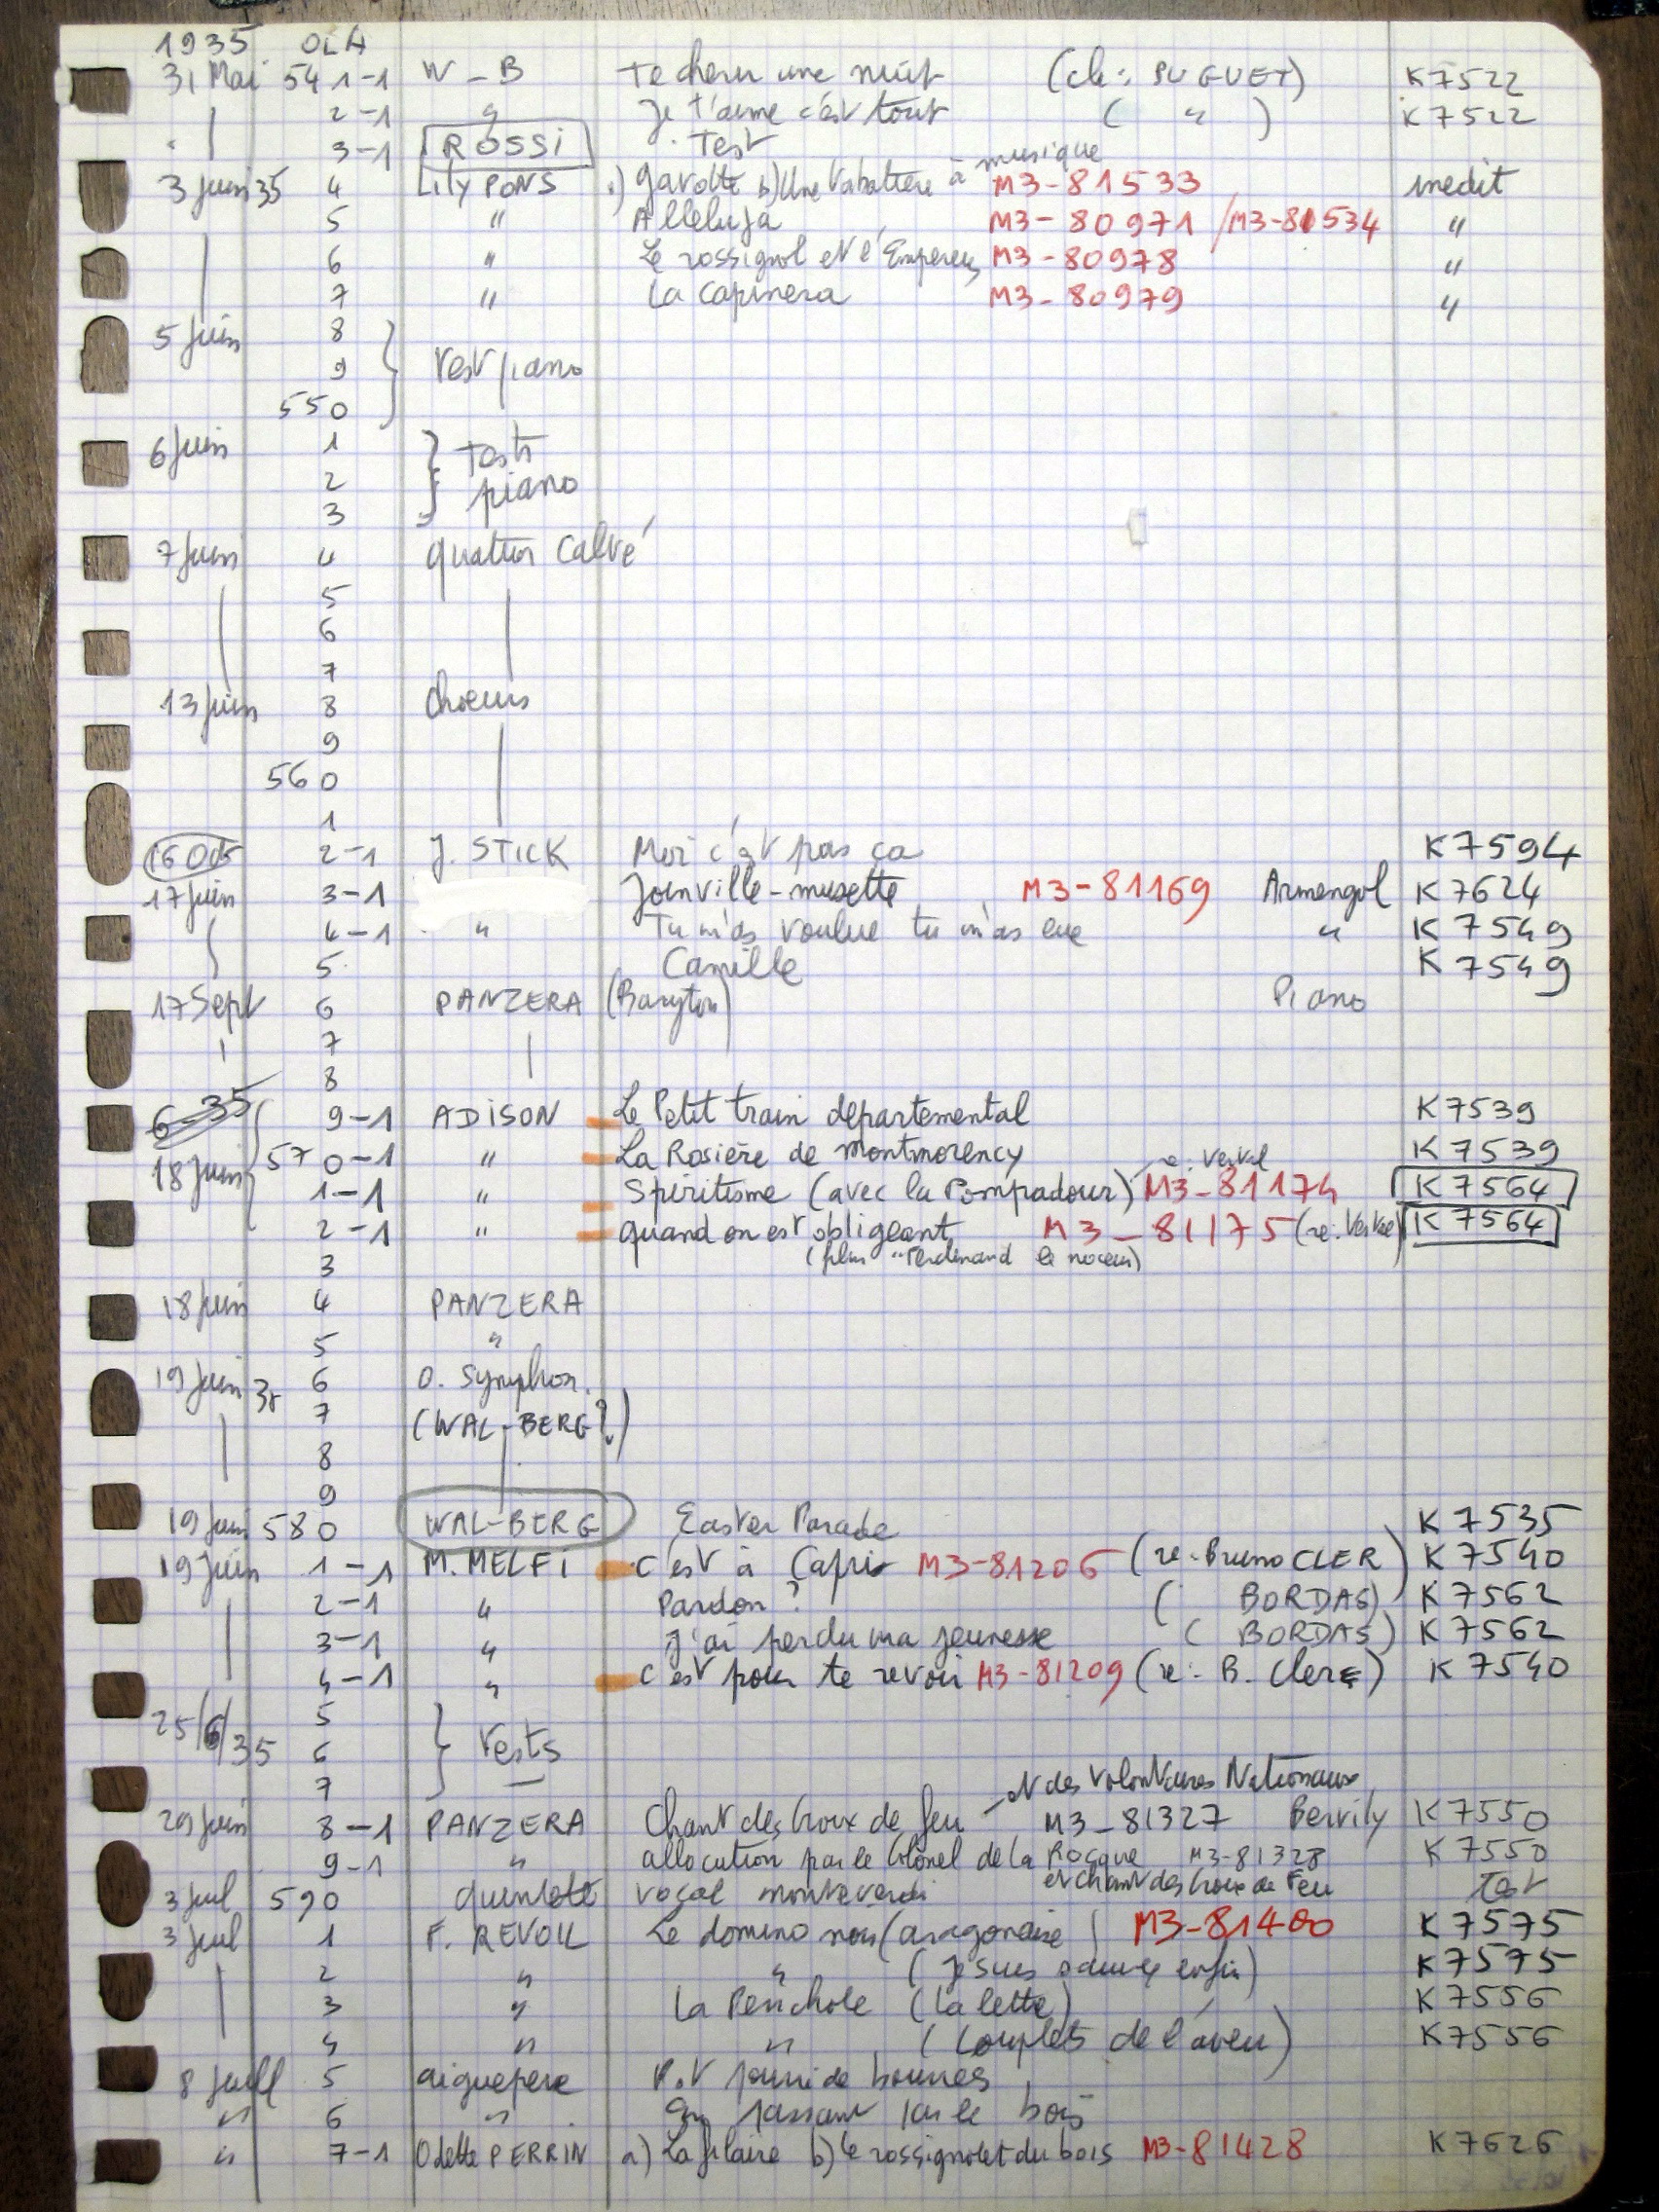 1935 OLA
31 Mai 541-1 W-B Te cherr une nuit (ch: PUGUET) K7522
2-1 " Je t'aime c'est tout ( " ) K7522
3-1 ROSSI Test
musique
3 juin 35 4 Lily PONS a) gavotte b) Une tabatière à M3-81533 inedit
5 " Alleluja M3-80971 / M3-81534 "
6 " Le rossignol et l'Empereur M3-80978 "
7 " La capinera M3-80979 "
5 juin 8
9 Test piano
550
6 juin 1 Tests
2 piano
3
7 juin 4 quatuor Calvé
5
6
7
13 juin 8 choeurs
9
560
1
16 Oct 2-1 J. STICK Moi c'est pas ça K7594
17 juin 3-1 Joinville-musette M3-81169 Armengol K7624
4-1 " Tu m'as voulue tu m'as eue " K7549
5 Camille K7549
17 Sept 6 PANZERA (Baryton) Piano
7
8
6-35 9-1 ADISON Le Petit train departemental K7539
570-1 " La Rosière de montmorency K7539
18 juin 1-1 " Spiritisme (avec la Pompadour) M3-81174 K7564
2-1 " quand on est obligeant M3-81175 K7564
3 (film "Ferdinand le noceur)
18 juin 4 PANZERA
5 "
19 juin 35 6 O. Symphon.
7 (WAL-BERG?)
8
9
19 juin 580 WAL-BERG Easter Parade K7535
19 juin 1-1 M. MELFI c'est à Capri M3-81206 (re: Bruno CLER) K7540
2-1 " Pardon? ( BORDAS) K7562
3-1 " J'ai perdu ma jeunesse ( BORDAS) K7562
4-1 " c'est pour te revoir M3-81209 (re: B. Clerc) K7540
25/6/35 5
6 Tests
7
et des Volontaires Nationaux
29 juin 8-1 PANZERA Chant des Croix de feu M3-81327 Bervily K7550
9-1 " allocution par le Colonel de la Rocque M3-81328 K7550
et chant des Croix de Feu
3 juil 590 quintette vocal monteverdi Test
3 juil 1 F. REVOIL Le domino noir (aragonaise) M3-81400 K7575
2 " " (Je suis sauvée enfin) K7575
3 " La Perichole (La lettre) K7556
4 " " (Couplets de l'aveu) K7556
8 juill 5 aiguepere
" 6 " En passant par le bois
" 7-1 Odette PERRIN a) La filaire b) le rossignolet du bois M3-81428 K7626